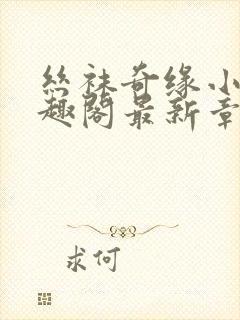 丝袜奇缘小
趣阁最新章
求何